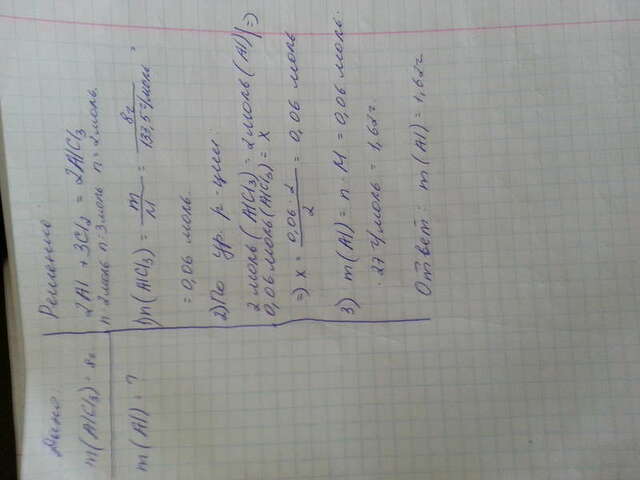 Дано:
m(AlCl3) = 8г
m(Al) = ?
Решение
2Al + 3Cl2 = 2AlCl3
n=2моль n=3моль n=2моль
1)n(AlCl3) = m/M = 8г/133,5г/моль =
= 0,06 моль.
2)По ур. р-ции
2 моль(AlCl3) = 2моль(Al) | =>
0,06моль(AlCl3) = x
=> x = 0,06·2/2 = 0,06 моль
3) m(Al) = n·M = 0,06 моль·
·27г/моль = 1,62г.
Ответ: m(Al) = 1,62г